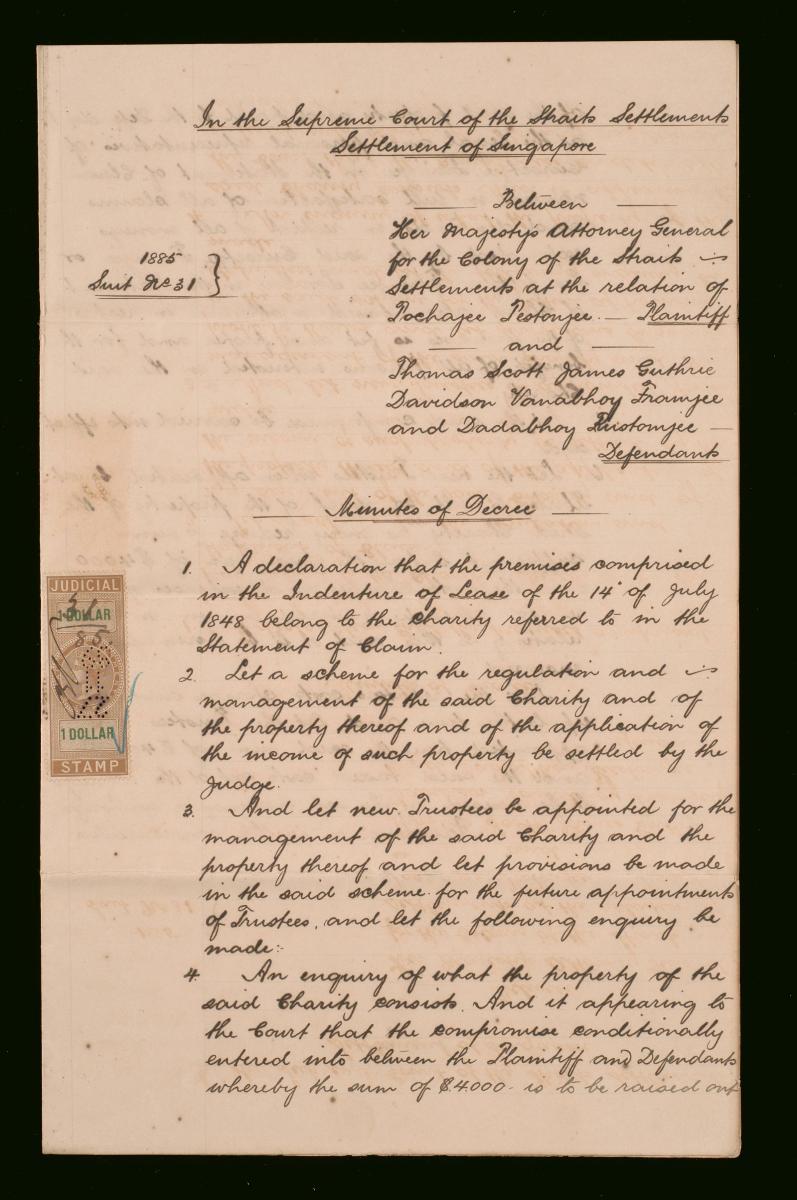 In the Supreme Court of the Straits Settlements
Settlement of Singapore
Between
Her Majesty's Attorney General
for the Colony of the Straits
Settlements at the relation of
Pochajee Pestonjee. — Plaintiff
1885
Suit No 31
and
Thomas Scott James Guthrie
Davidson Vanabhoy Framjee
and Dadabhoy Rustomjee —
Defendants
Minutes of Decree
1. A declaration that the premises comprised
in the Indenture of Lease of the 14th of July
1848 belong to the charity referred to in the
Statement of Claim.
2. Let a scheme for the regulation and
management of the said Charity and of
the property thereof and of the application of
the income of such property be settled by the
Judge.
3. And let new Trustees be appointed for the
management of the said Charity and the
property thereof and let provisions be made
in the said scheme for the future appointments
of Trustees, and let the following enquiry be
made:-
4. An enquiry of what the property of the
said Charity consists. And it appearing to
the Court that the compromise conditionally
entered into between the Plaintiff and Defendants
whereby the sum of $4000- is to be raised out
JUDICIAL
1 DOLLAR
31
85
1 DOLLAR
STAMP